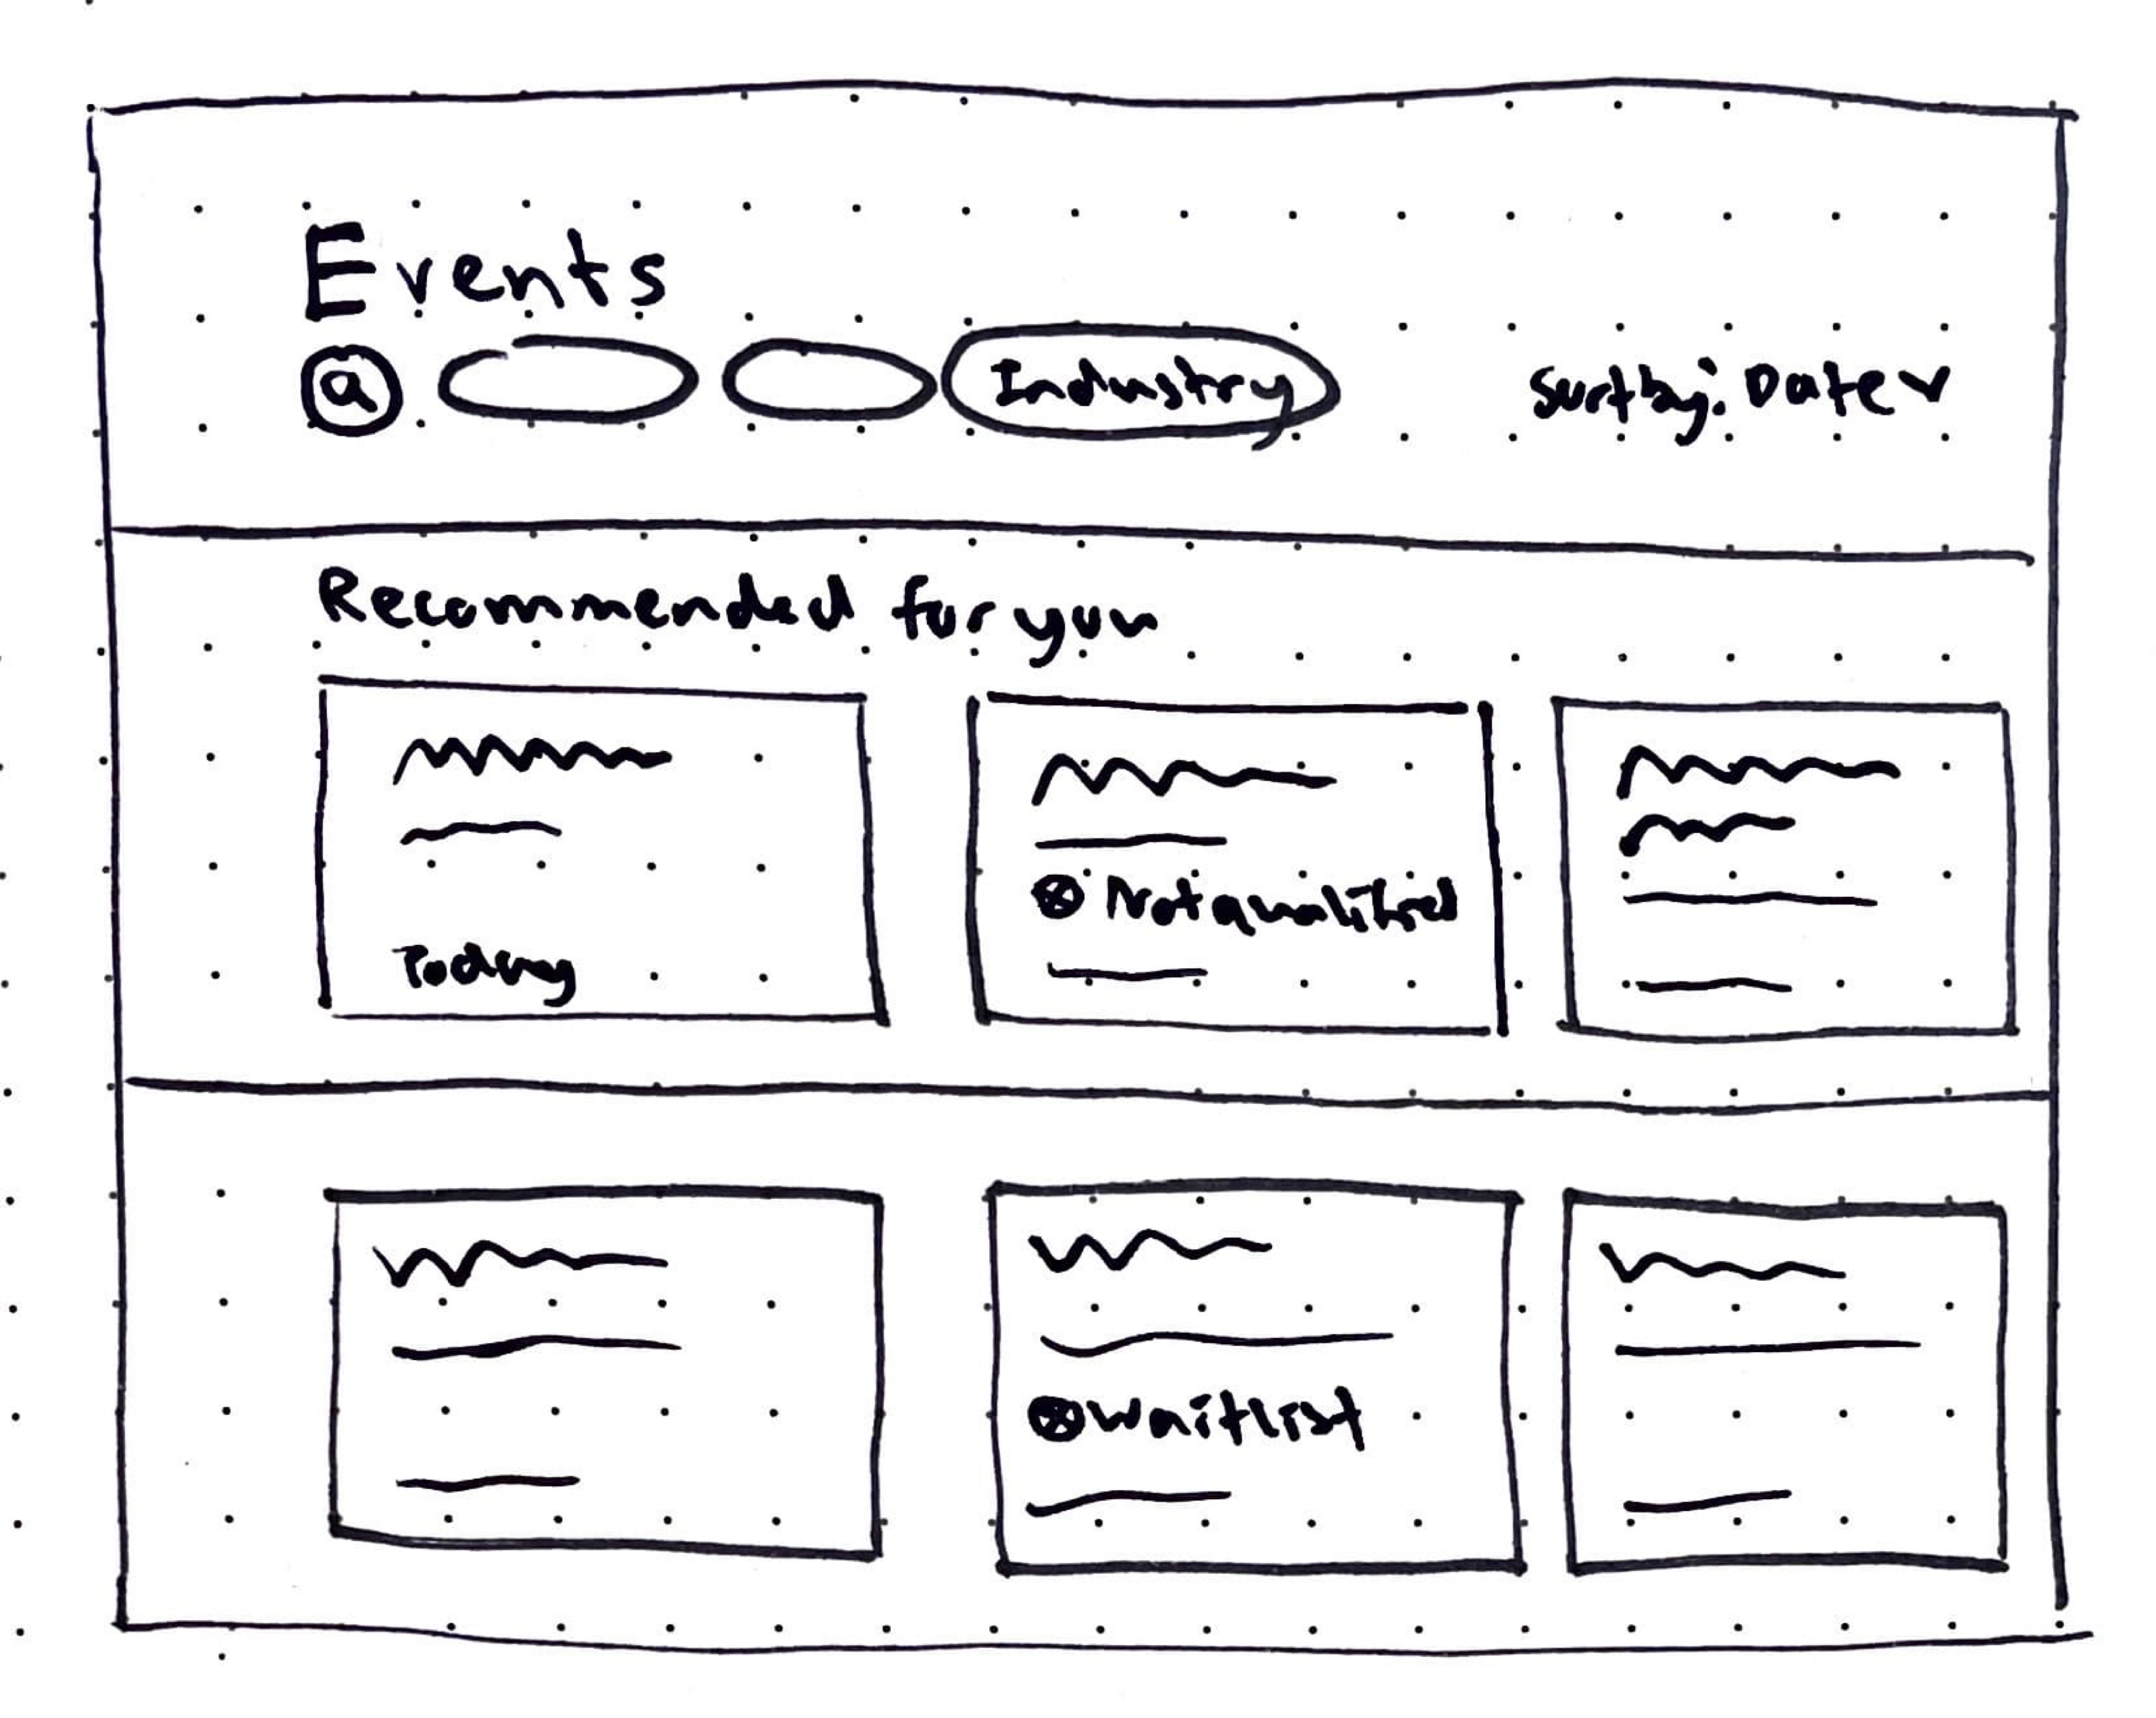 Events
Industry
Sort by: Date
Recommended for you
Not qualified
Today
Waitlist